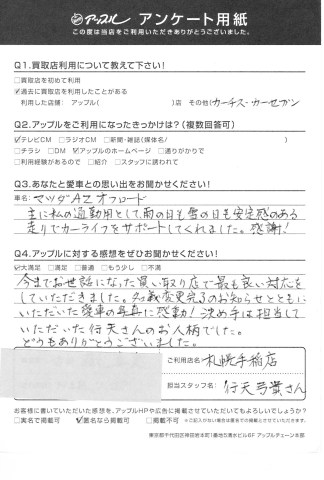 アップル アンケート用紙
この度は当店をご利用いただきありがとうございました。
Q1.買取店利用について教えて下さい!
□買取店を初めて利用
☑過去に買取店を利用したことがある
利用した店舗: アップル( )店 その他(カーチス・カーセブン
Q2.アップルをご利用になったきっかけは?(複数回答可)
☑テレビCM □ラジオCM □新聞・雑誌(媒体名/ )
□チラシ □DM ☑アップルのホームページ □通りがかりで
□利用経験があるので □紹介 □スタッフに誘われて
Q3.あなたと愛車との思い出をお聞かせください!
車名: マツダAZオフロード
主に私の通勤用として雨の日も雪の日も安定感のある
走りでカーライフをサポートしてくれました。感謝!
Q4.アップルに対する感想をぜひお聞かせください!
☑大満足 □満足 □普通 □もう少し □不満
今までお世話になった買い取り店で最も良い対応を
していただきました。名義変更完了のお知らせとともに
いただいた愛車の写真に感動!決め手は担当して
いただいた行天さんのお人柄でした。
どうもありがとうございました。
ご利用店名: 札幌手稲店
担当スタッフ名: 行天 さん
お客様に書いていただいた感想を、アップルHPや広告に掲載させていただいてもよろしいでしょうか?
□実名で掲載可 ☑匿名なら掲載可 □掲載不可 ※ご記入がない場合は匿名での掲載とさせていただきます。
東京都千代田区神田岩本町1番地5清水ビル6F アップルチェーン本部